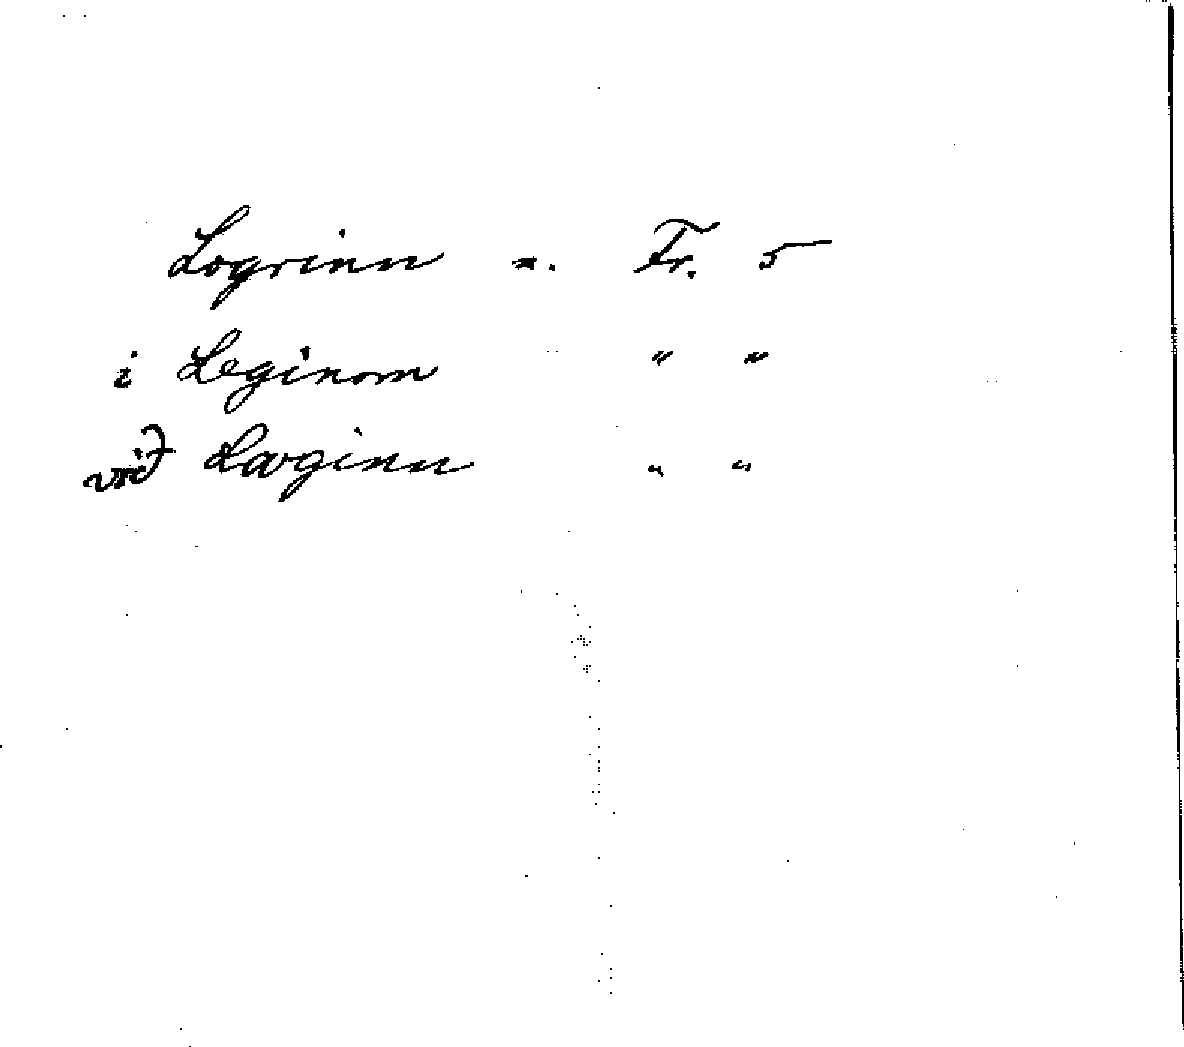 Logrinn n. Fr. 5
i Leginom " "
við Lavginn " "